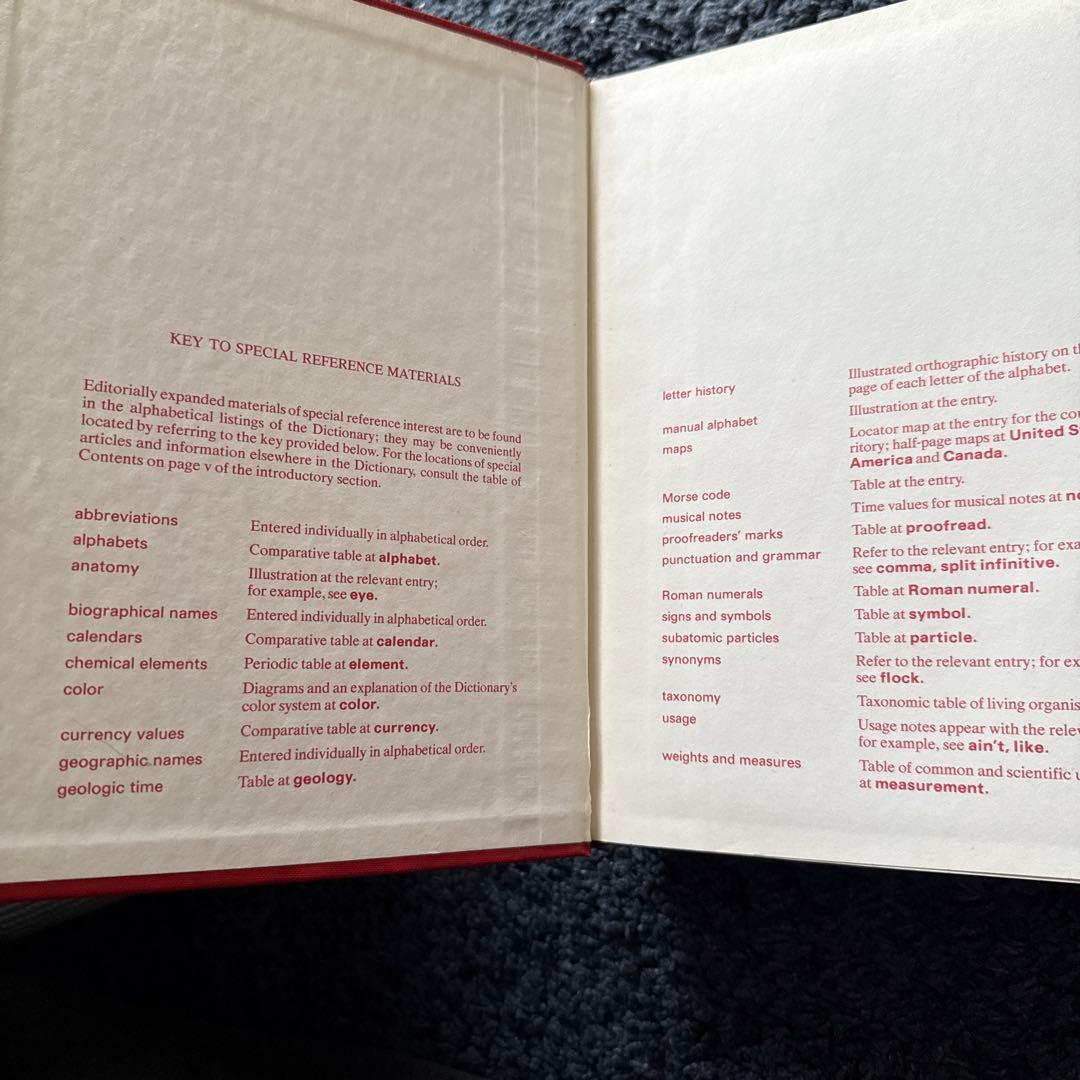 KEY TO SPECIAL REFERENCE MATERIALS
Editorially expanded materials of special reference interest are to be found
in the alphabetical listings of the Dictionary; they may be conveniently
located by referring to the key provided below. For the locations of special
articles and information elsewhere in the Dictionary, consult the table of
Contents on page v of the introductory section.
abbreviations Entered individually in alphabetical order.
alphabets Comparative table at alphabet.
anatomy Illustration at the relevant entry;
for example, see eye.
biographical names Entered individually in alphabetical order.
calendars Comparative table at calendar.
chemical elements Periodic table at element.
color Diagrams and an explanation of the Dictionary's
color system at color.
currency values Comparative table at currency.
geographic names Entered individually in alphabetical order.
geologic time Table at geology.
letter history Illustrated orthographic history on
page of each letter of the alphabet.
manual alphabet Illustration at the entry.
maps Locator map at the entry for the
ritory; half-page maps at United
America and Canada.
Morse code Table at the entry.
musical notes Time values for musical notes at
proofreaders' marks Table at proofread.
punctuation and grammar Refer to the relevant entry; for
see comma, split infinitive.
Roman numerals Table at Roman numeral.
signs and symbols Table at symbol.
subatomic particles Table at particle.
synonyms Refer to the relevant entry; for
see flock.
taxonomy Taxonomic table of living
usage Usage notes appear with the
for example, see ain't, like.
weights and measures Table of common and scientific
at measurement.